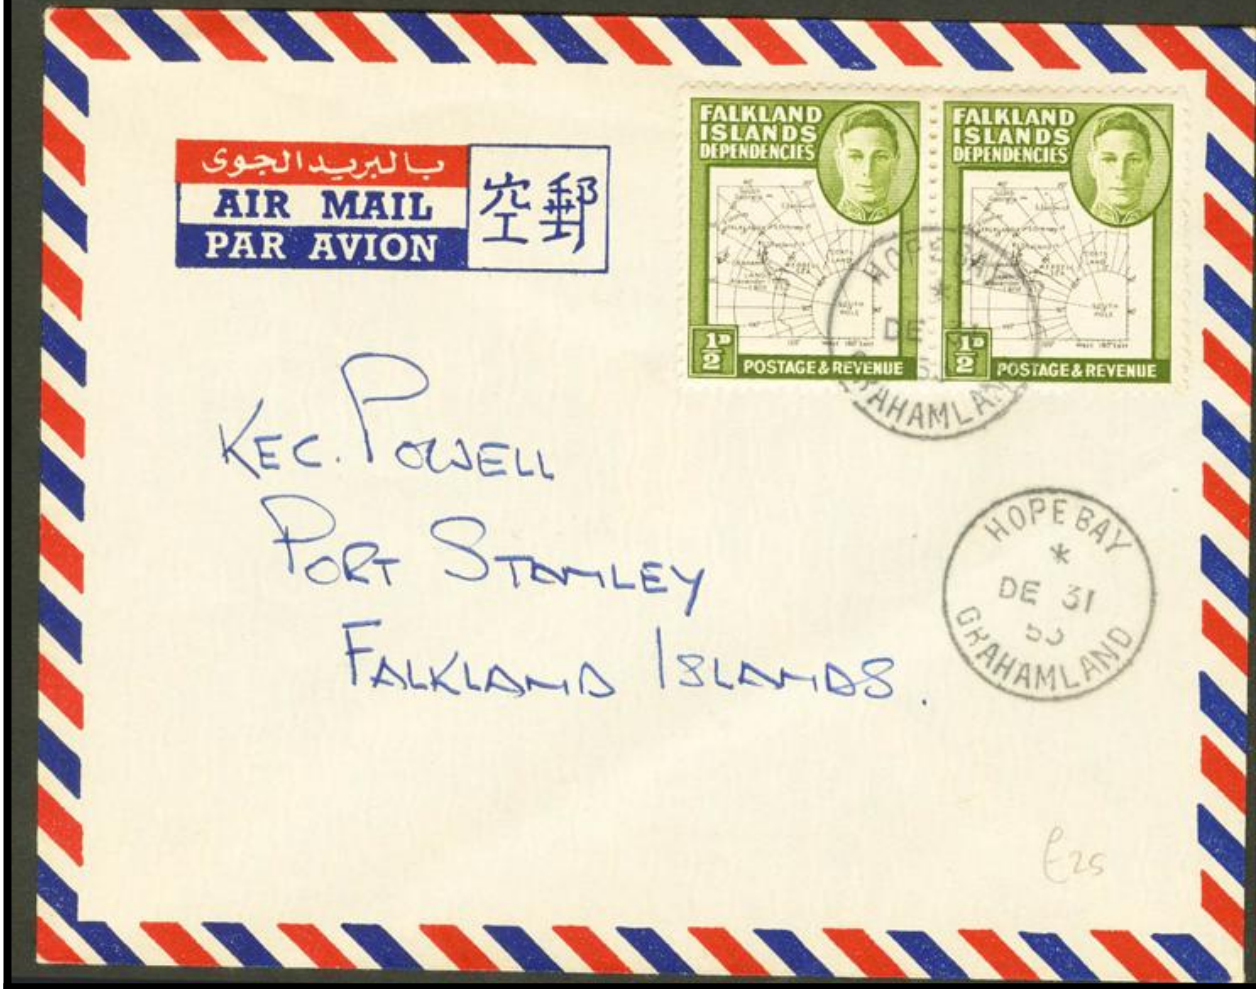 بالبريد الجوى
AIR MAIL
PAR AVION
空郵
FALKLAND
ISLANDS
DEPENDENCIES
½D
POSTAGE & REVENUE
FALKLAND
ISLANDS
DEPENDENCIES
½D
POSTAGE & REVENUE
HOPE BAY
*
DE
GRAHAMLAND
KEC. POWELL
PORT STANLEY
FALKLAND ISLANDS.
HOPE BAY
*
DE 31
GRAHAMLAND
£25